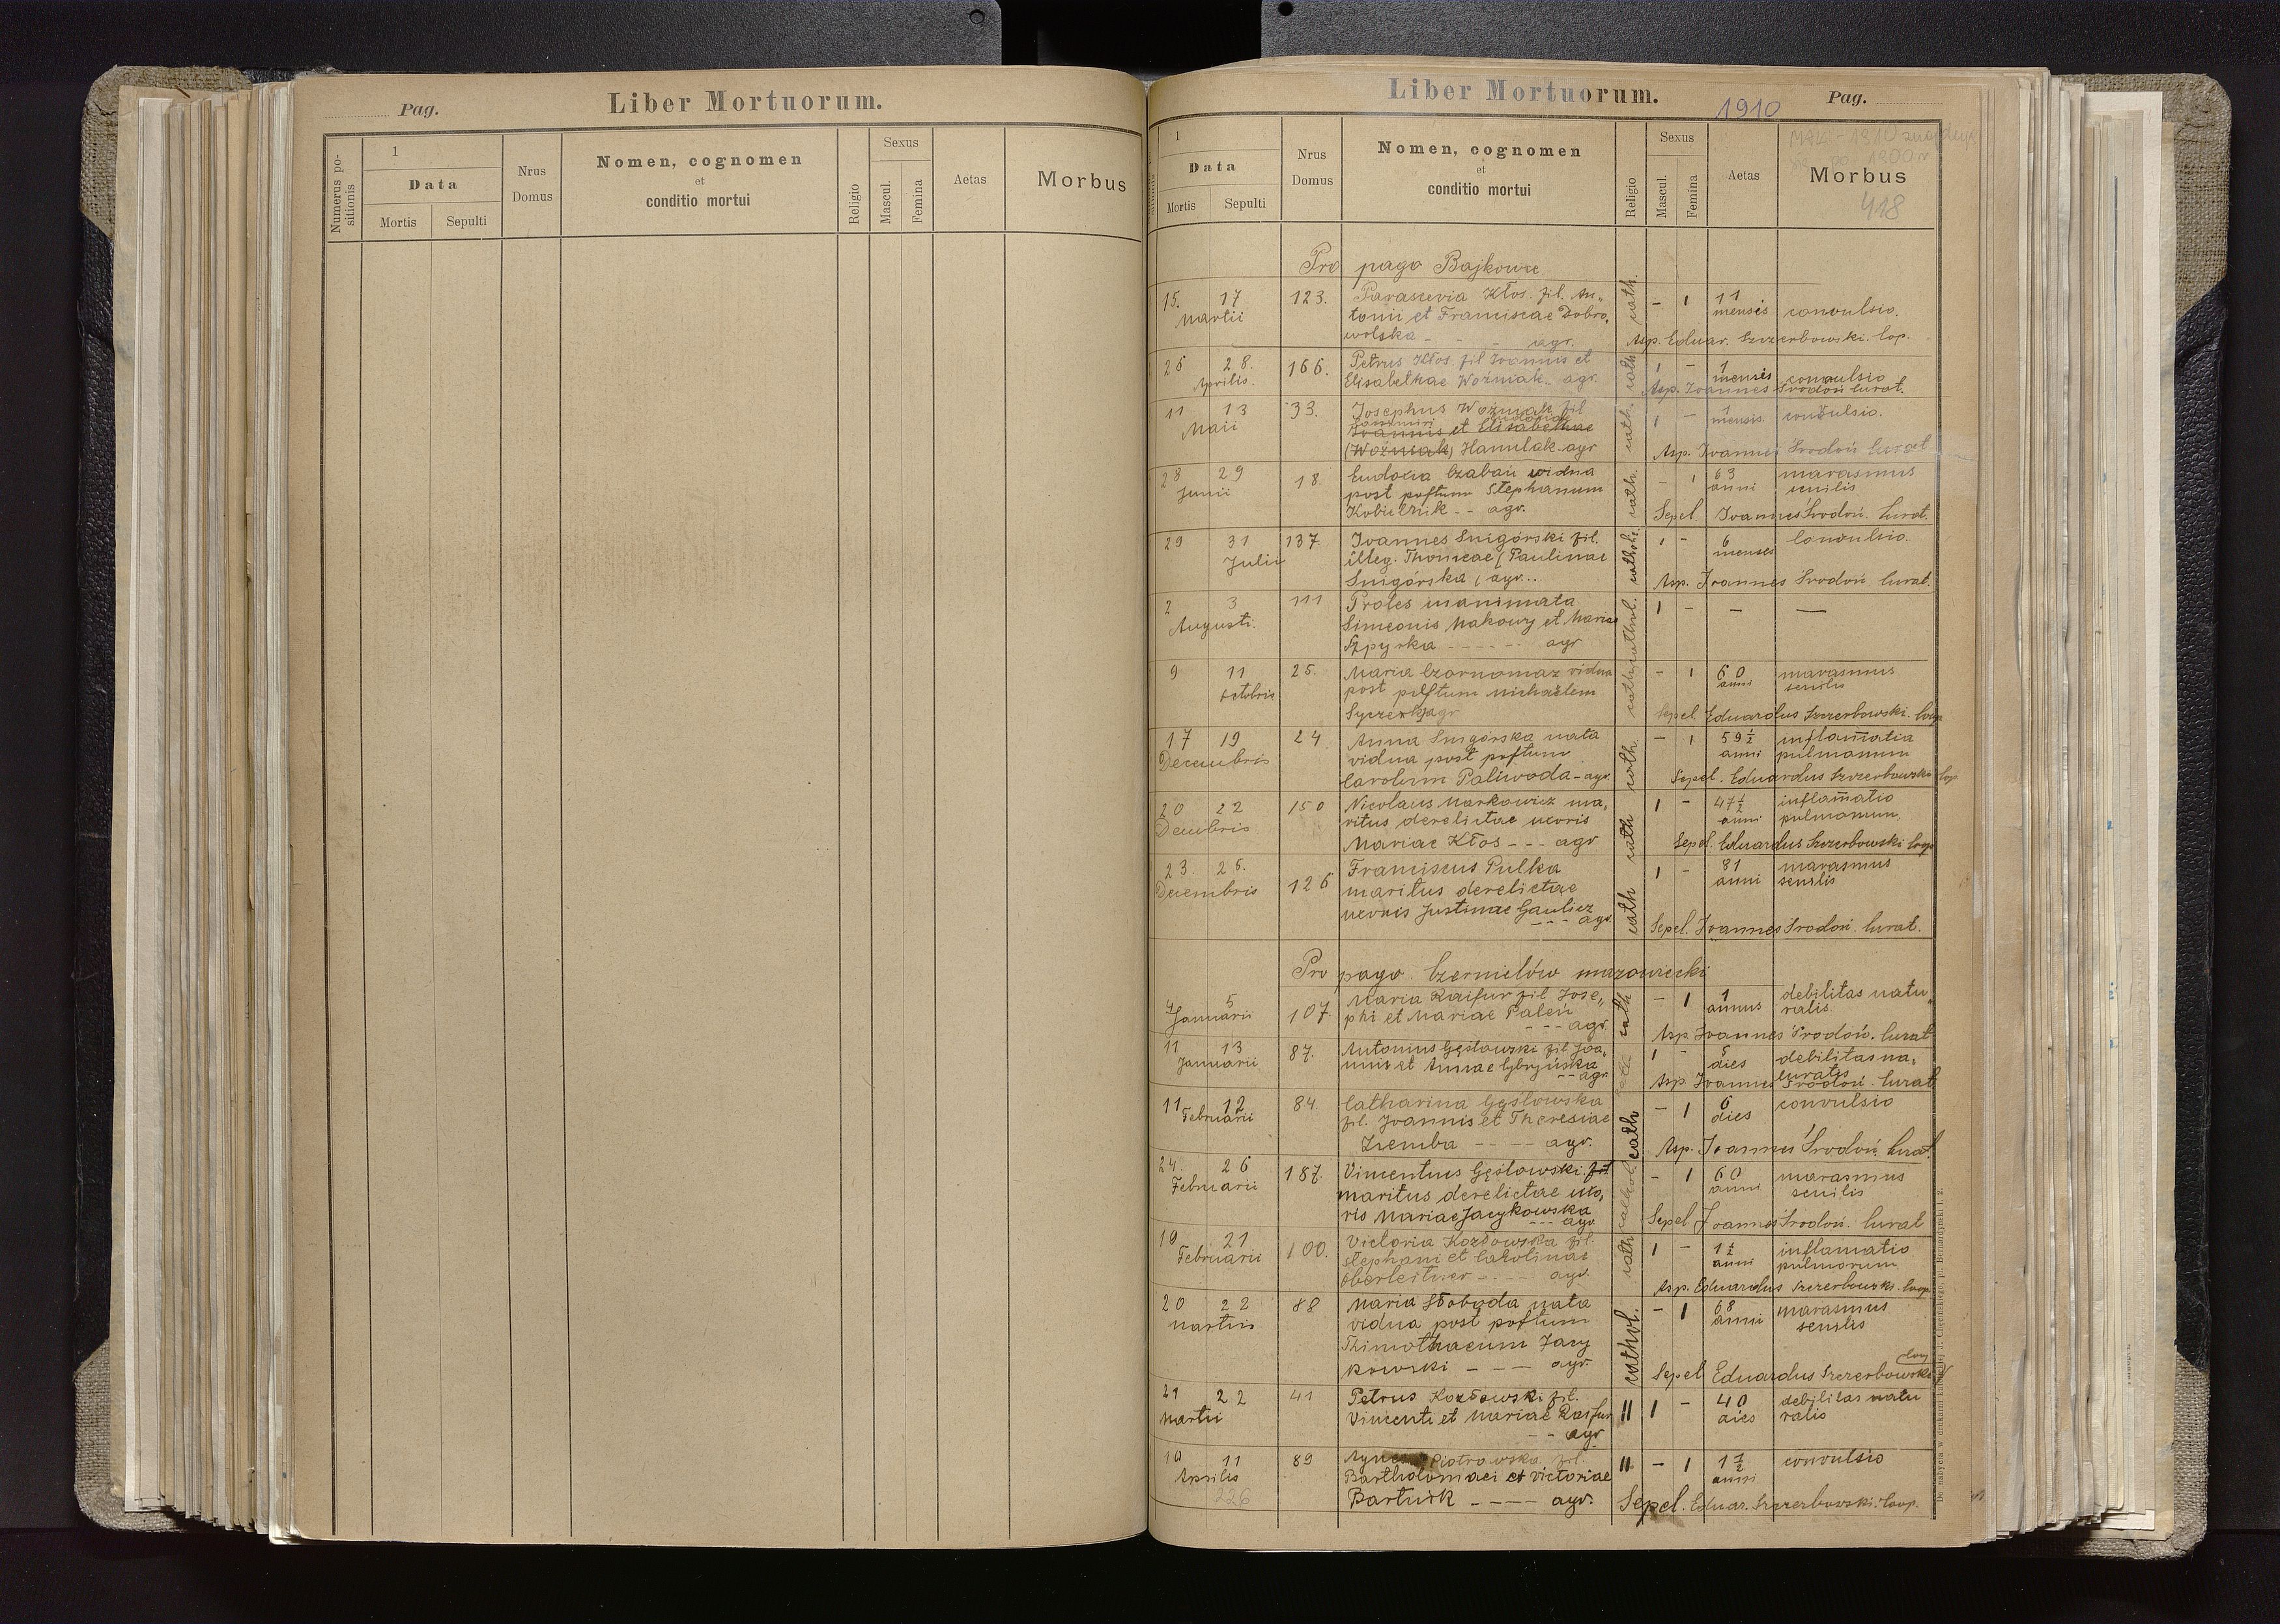 Pag.
Liber Mortuorum.
Numerus positionis
1
Data
Mortis
Sepulti
Nrus
Domus
Nomen, cognomen
et
conditio mortui
Religio
Sexus
Mascul.
Femina
Aetas
Morbus
Liber Mortuorum.
1910
Pag.
1
Data
Mortis
Sepulti
Nrus
Domus
Nomen, cognomen
et
conditio mortui
Religio
Sexus
Mascul.
Femina
Aetas
Morbus
418
Pro pago Bajkowce
15. 17 123. Parascevia Kłos. fil. An„ cath. - 1 11
Martii tonii et Franciscae Dobro„ mensis convulsio.
wolska - - - agr. Asp. Eduar. Szczerbowski. Coop.
26 28. 166. Petrus Kłos fil Ioannis et cath 1 - 1
Aprilis. Elisabethae Woźniak - agr. mensis convulsio
Asp. Ioannes Srodoń Curat.
11 13 33. Josephus Woźniak fil cath. 1 - 1 convulsio.
Maii Ioannis et Elisabethae mensis.
(Woźniak) Hanulak agr Asp. Ioannes Srodoń Curat
28 29 18. Eudocia Czaban vidua cath. - 1 63 marasmus
Junii post psftum Stephanum anni senilis
Kobielnik - - agr. Sepel. Ioannes Srodoń. Curat.
29 31 137. Ioannes Snigórski fil. cathol. 1 - 6 Convulsio.
Julii illeg. Thomcae (Paulinae menses
Snigórska) agr... Asp. Ioannes Srodoń Curat.
2 3 111 Proles inanimata cathol. 1 - - -
Augusti. Simeonis Makowy et Mariae
Szpyrka - - - - - - agr
9 11 25. Maria Czarnomaz vidua cath. - 1 60 marasmus
Octobris post psftum Michaëlem anni senilis
agr Sepel. Eduardus Szczerbowski. Coop.
17 19 24 Anna Snigórska nata cath - 1 59½ inflam̄atia
Decembris vidua post psftum anni pulmonum
Carolum Paliwoda - agr. Sepel. Eduardus Szczerbowski Coop
20 22 150 Nicolaus Markowicz ma„ cath 1 - 47½ inflam̄atio
Decembris ritus derelictae uxoris anni pulmonum.
Mariae Kłos - - - agr Sepel. Eduardus Szczerbowski Coop
23. 25. 126 Franciscus Pulka cath 1 - 81 marasmus
Decembris maritus derelictae anni senilis
uxoris Justinae Gaulicz
- - - agr. Sepel. Ioannes Srodoń. Curat.
Pro pago. Czernielów mazowiecki
4 5 107. Maria Raifur fil Jose„ cath - 1 1 debilitas natu„
Januarii phi et Mariae Paleń annus ralis.
- - - agr. Asp. Ioannes Srodoń. Curat
11 13 87. Antonius Gęsławski fil Joa„ cath 1 - 5 debilitas na„
Januarii nnis et Annae Cybryńska dies turalis
- - agr. Asp. Ioannes Srodoń. Curat
11 12 84. Catharina Gęsłowska cath - 1 6 convulsio
Februarii fil. Joannis et Theresiae dies
Ziemba - - - - agr. Asp. Ioannes Srodoń. Curat.
24. 26 187. Vincentius Gęsłowski. fil cathol. - 1 60 marasmus
Februarii maritus derelictae uxo„ anni senilis
ris Mariae Jacykowska
- - - agr. Sepel Joannes Srodoń. Curat
19 21 100. Victoria Kozłowska fil. cath 1 - 1½ inflamatio
Februarii Stephani et Carolinae anni pulmorum
Oberleitner - - - - agr. Asp. Eduardus Szczerbowski. Coop.
20 22 88 Maria Słoboda nata cathol. - 1 68 marasmus
Martiis vidua post psftum anni senilis
Thimothaeum Jacy
kowski - - - agr. Sepel Eduardus Szczerbowski Coop
21 22 41 Petrus Kozłowski fil. || 1 - 40 debilitas natu
Martii Vincenti et Mariae Raifur dies ralis
- - agr
10 11 89 Piotrowska. fil. || - 1 1½ convulsio
Aprilis Bartholomaei et Victoriae anni
226 Bartnik - - - - agr. Sepel. Eduar. Szczerbowski. Coop.